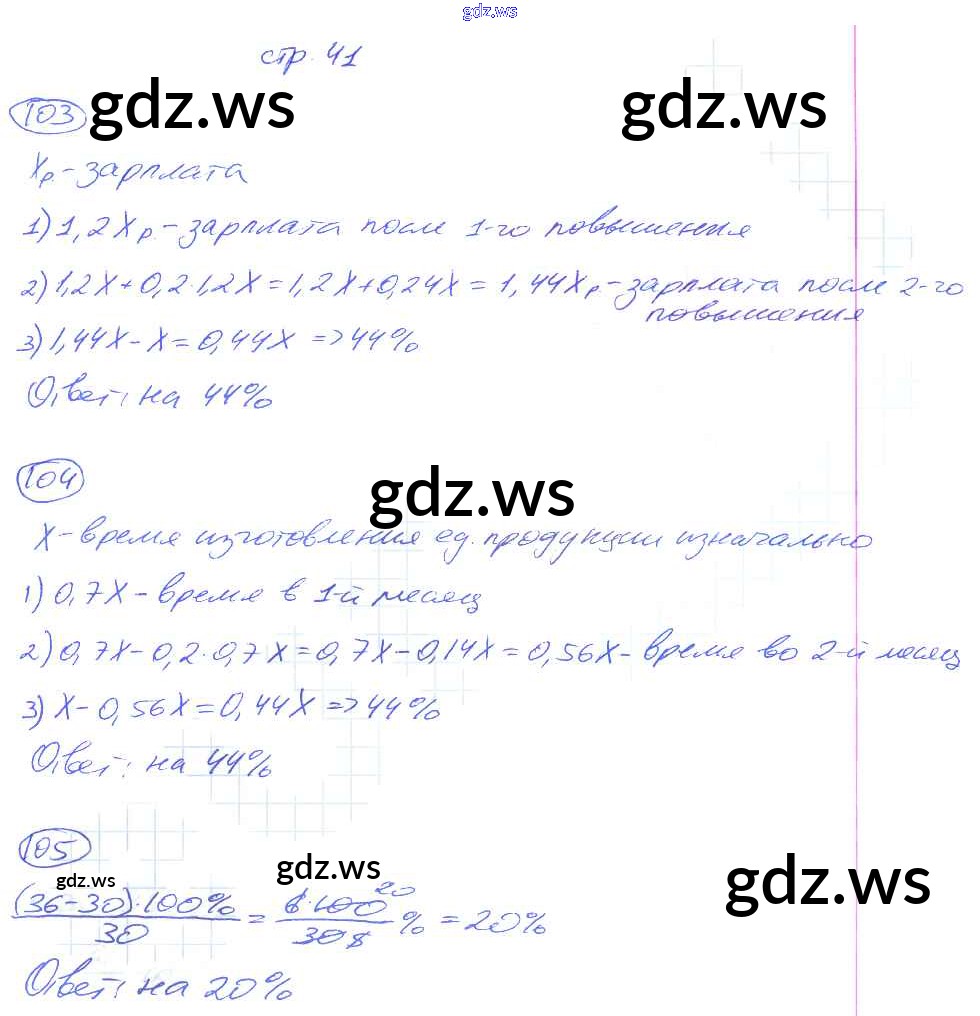 gdz.ws
стр. 41
103 gdz.ws gdz.ws
Xр. - зарплата
1) 1,2Xр. - зарплата после 1-го повышения
2) 1,2X + 0,2·1,2X = 1,2X + 0,24X = 1,44Xр. - зарплата после 2-го
повышения
3) 1,44X - X = 0,44X => 44%
Ответ: на 44%
104 gdz.ws
X - время изготовления ед. продукции изначально
1) 0,7X - время в 1-й месяц
2) 0,7X - 0,2·0,7X = 0,7X - 0,14X = 0,56X - время во 2-й месяц
3) X - 0,56X = 0,44X => 44%
Ответ: на 44%
105 gdz.ws gdz.ws gdz.ws
(36-30)·100% / 30 = 6·100 20 / 30 5 % = 20%
Ответ: на 20%